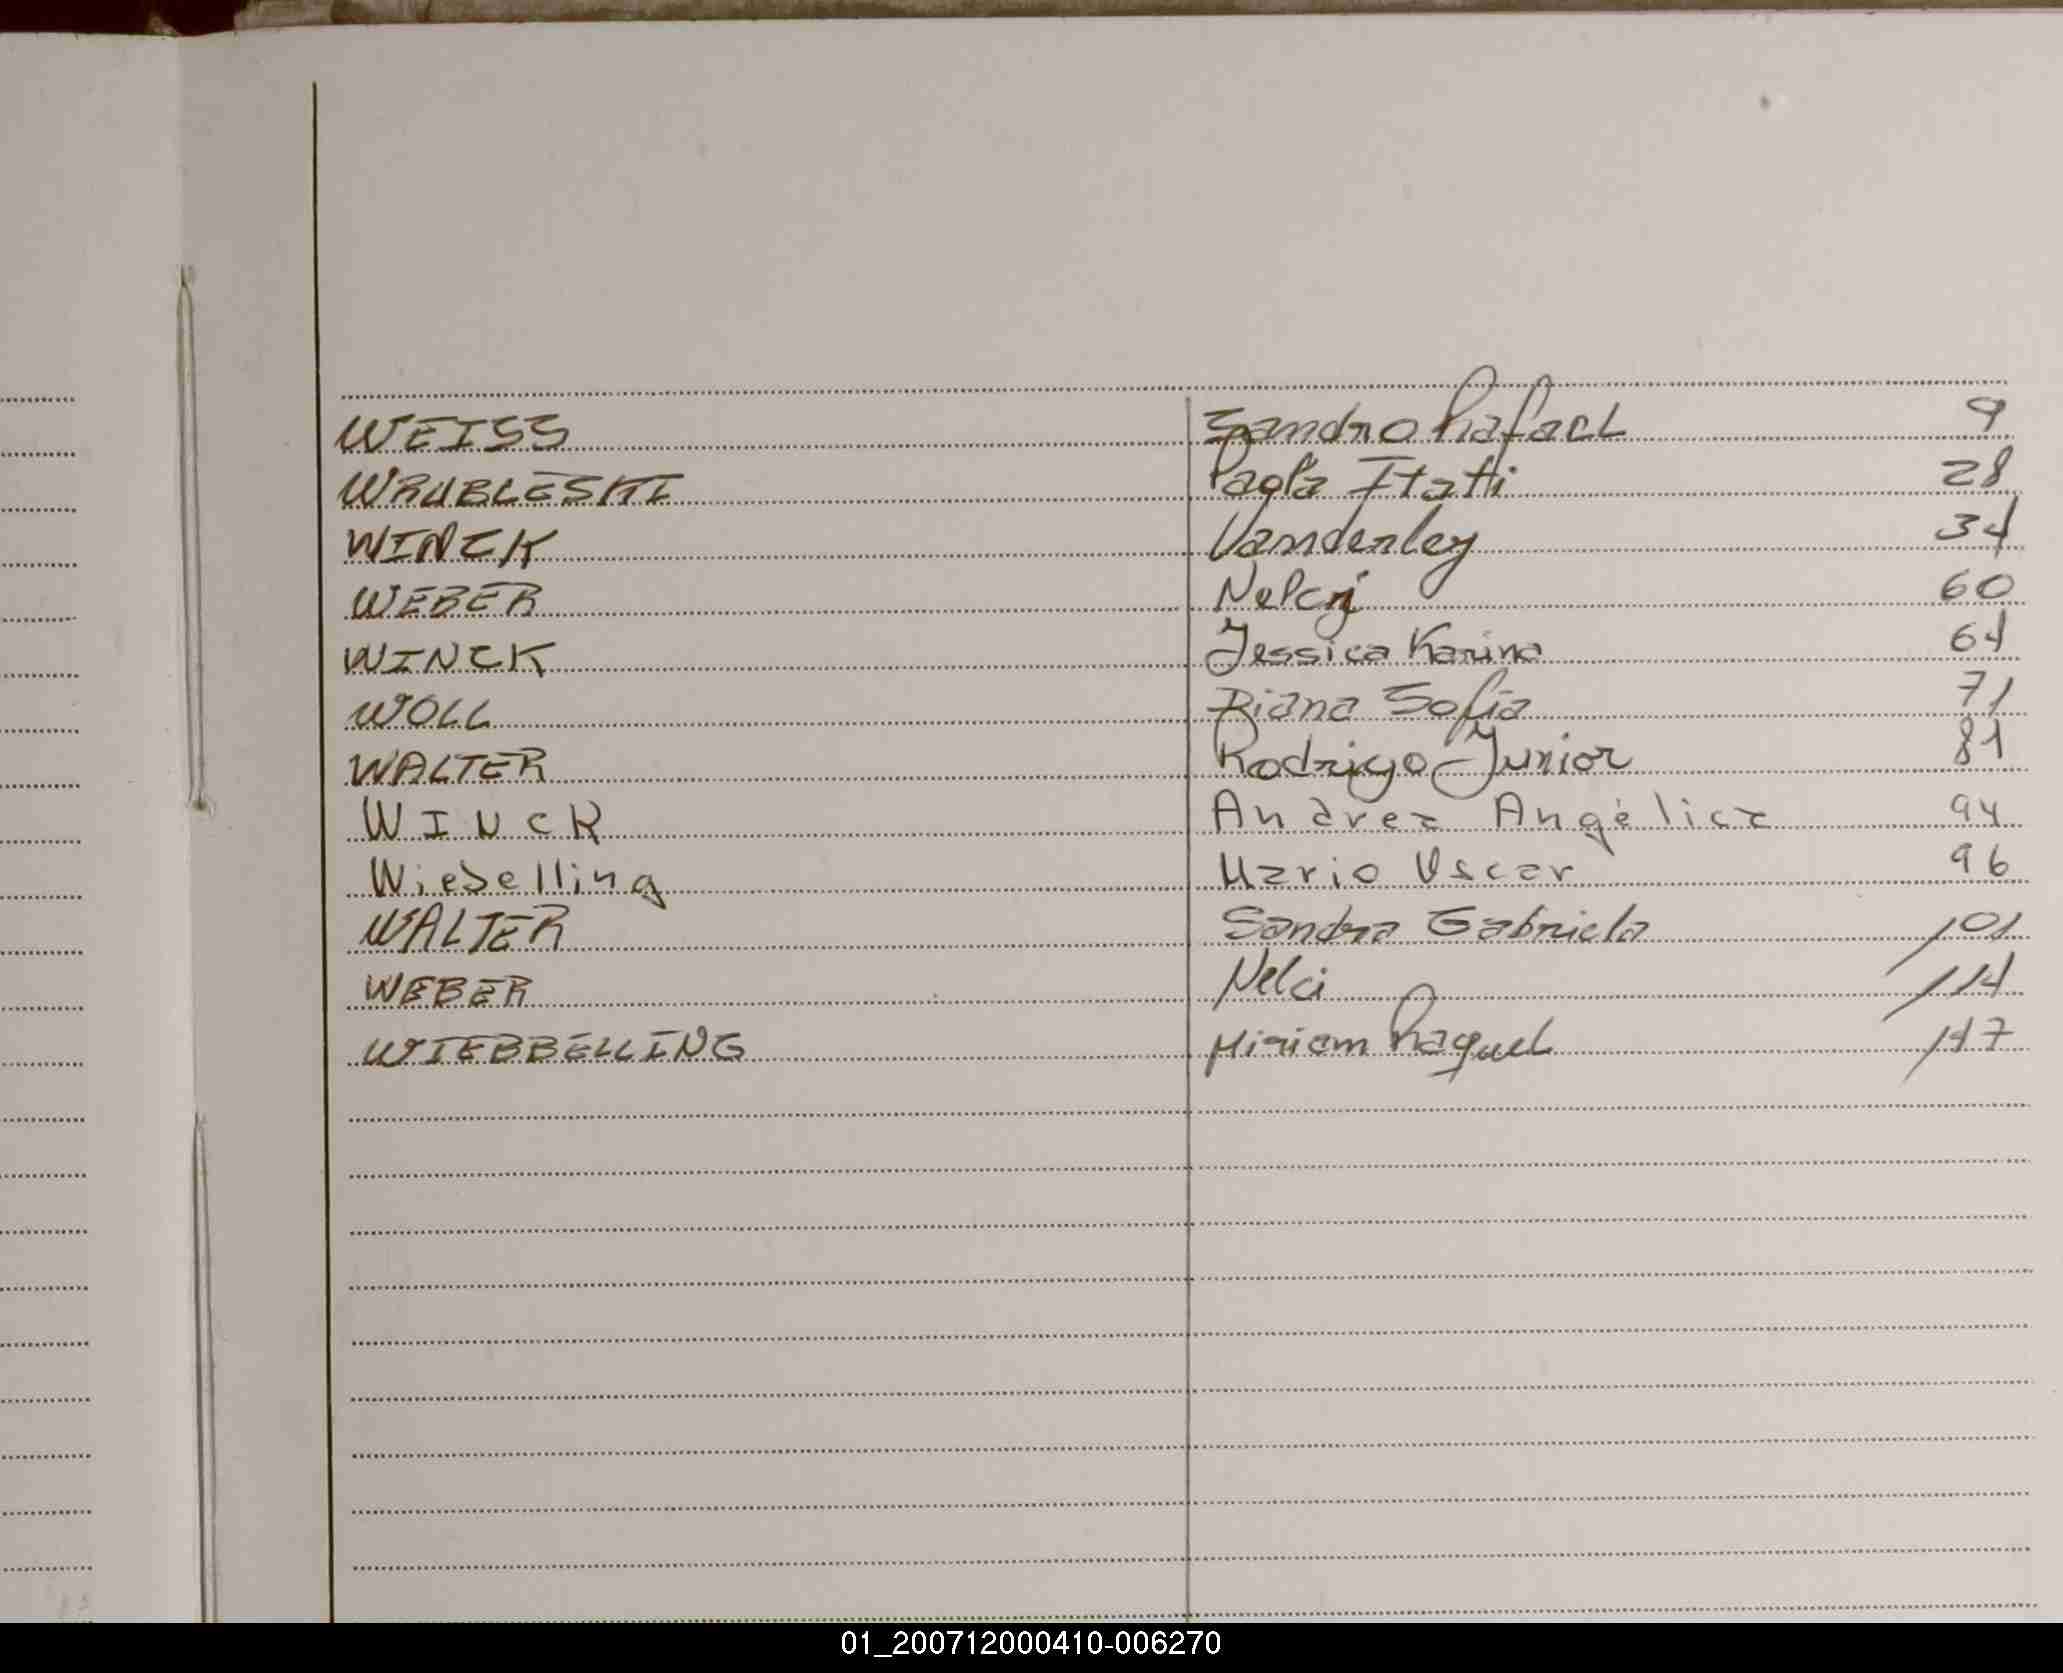 WEISS Sandro Rafael 9
WRUBLESKI Paola Itatí 28
WINCK Vanderley 34
WEBER Nelci 60
WINCK Jessica Karina 64
WOLL Diana Sofia 71
WALTER Rodrigo Junior 81
WINCK Andrea Angélica 94
Wiebelling Mario Oscar 96
WALTER Sandra Gabriela 101
WEBER Nelci 114
WIEBBELLING Miriam Raquel 147
01_200712000410-006270